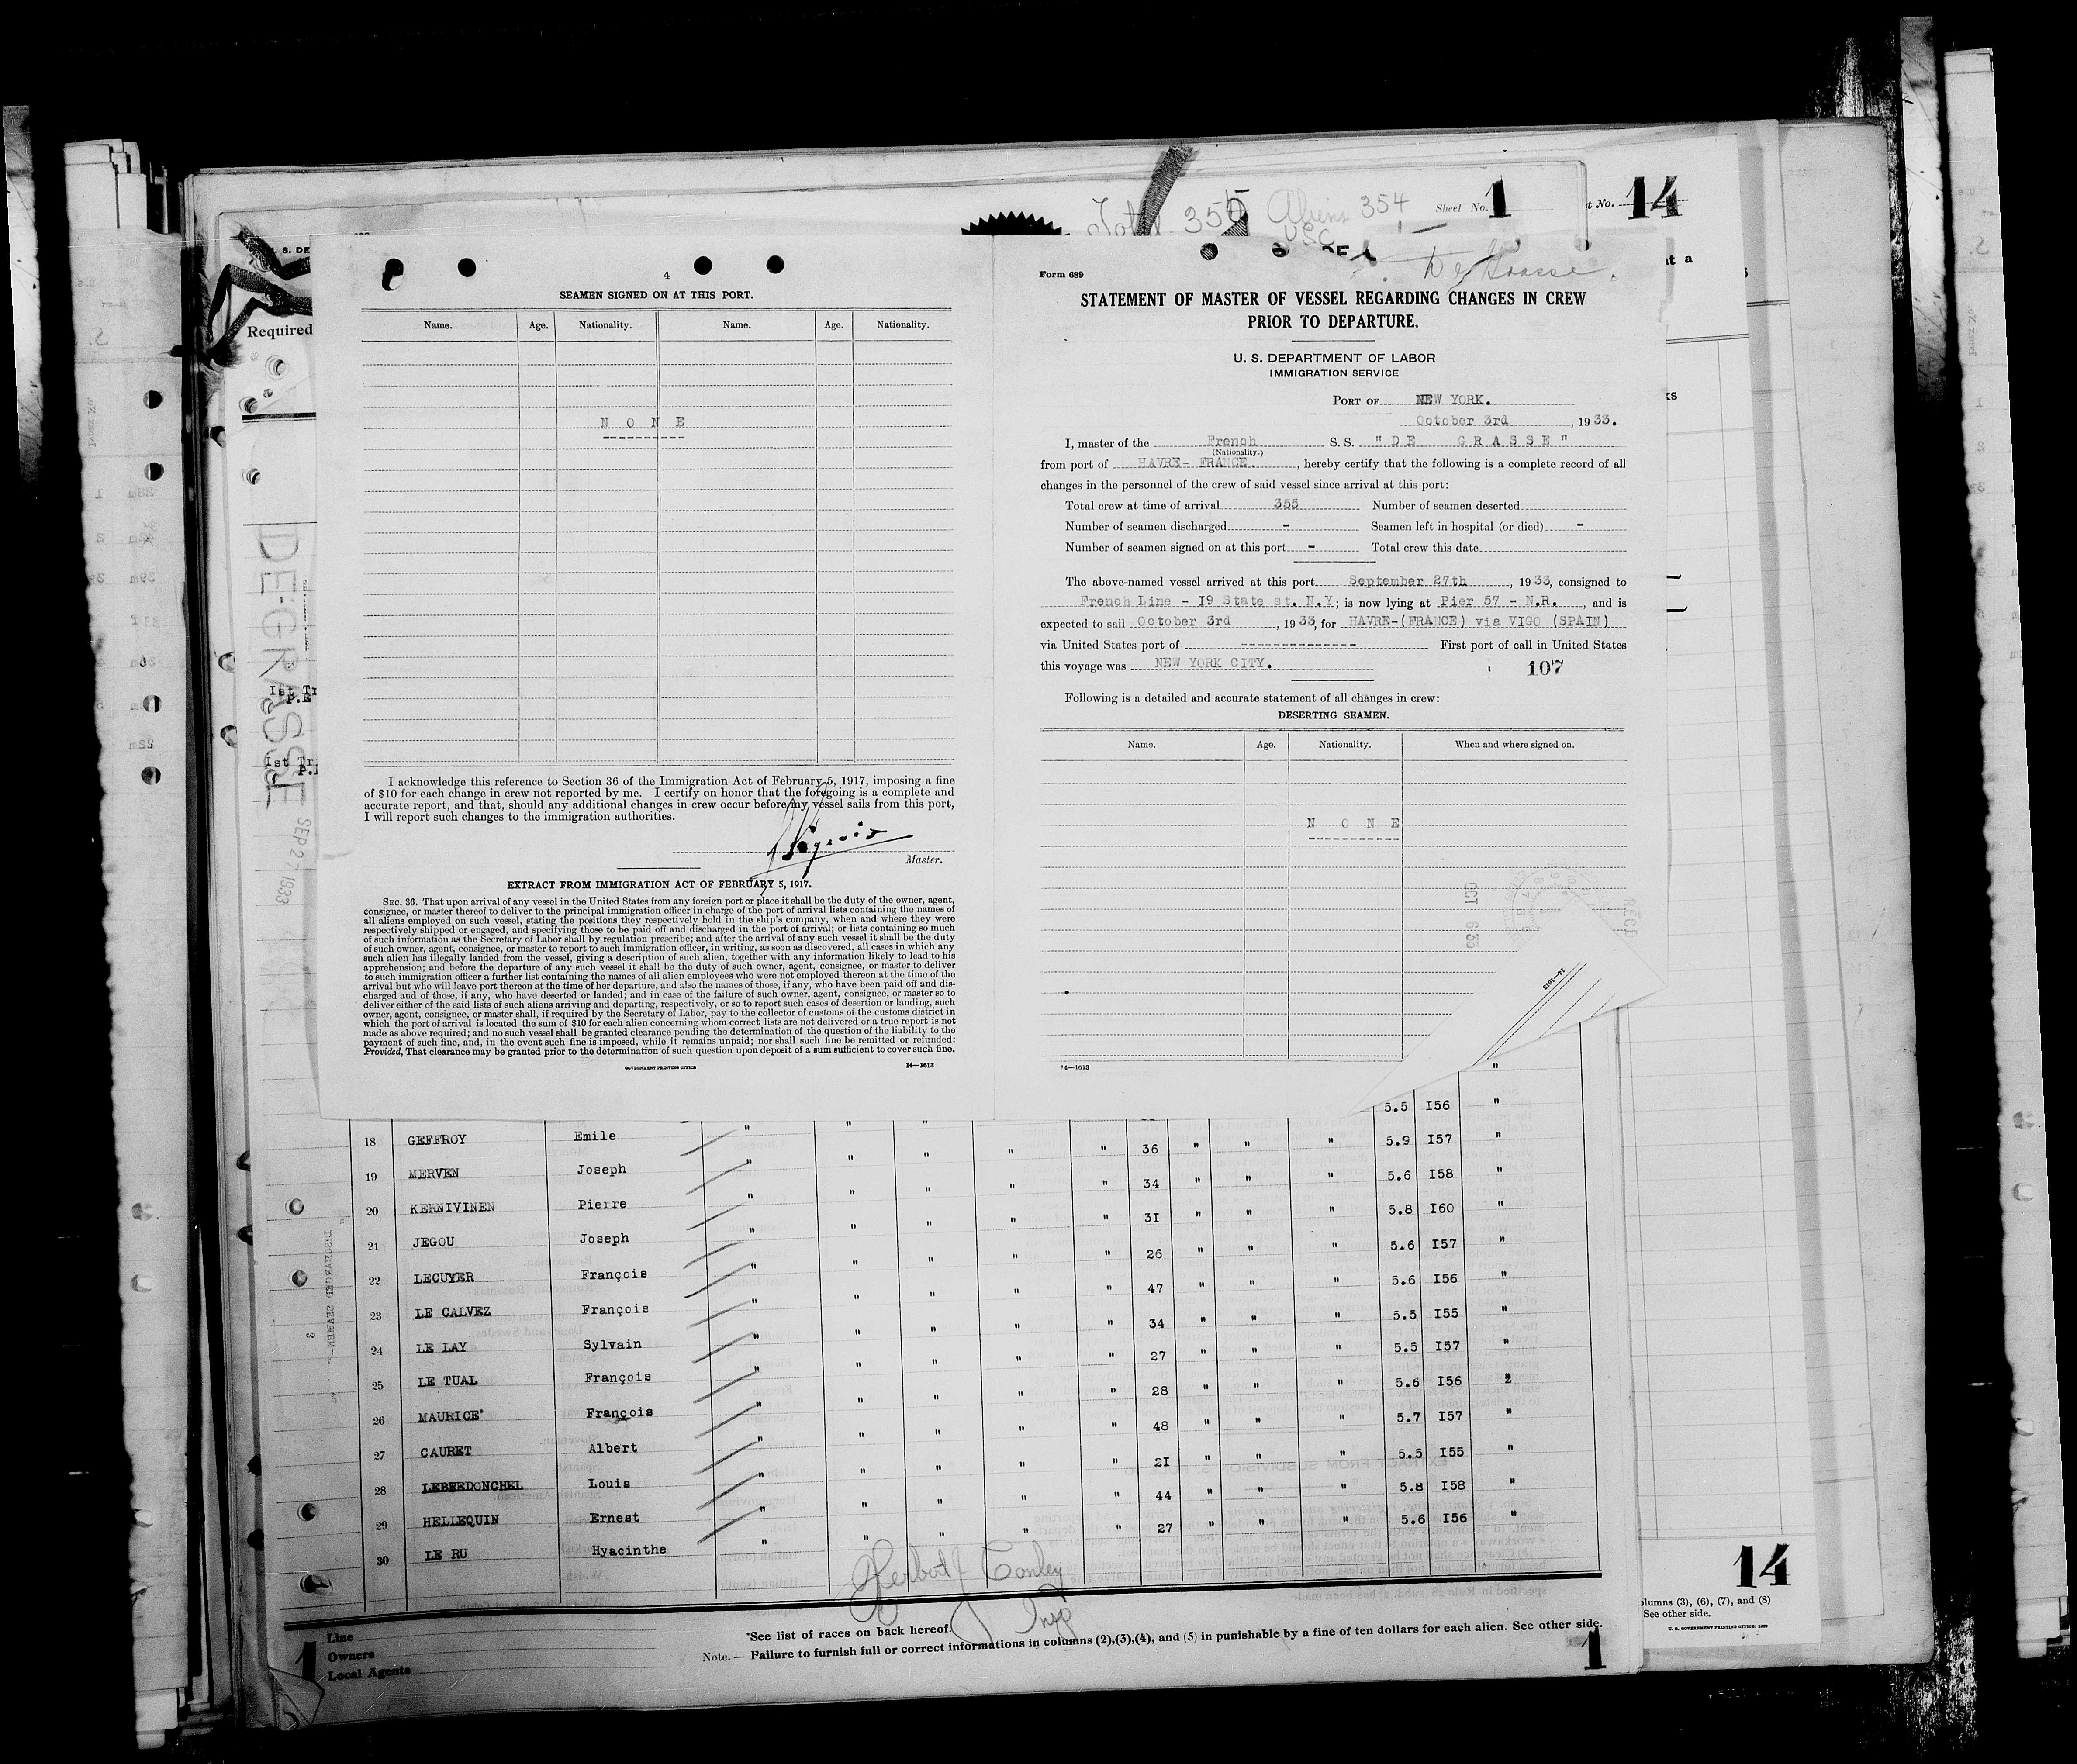 Total 355 Aliens 354 Sheet No. 1 t No. 14
USC 1
De Grasse.
U. S. DE
Required
DE-GRASSE
SEP 27 1933
4
SEAMEN SIGNED ON AT THIS PORT.
Name. Age. Nationality. Name. Age. Nationality.
N O N E
I acknowledge this reference to Section 36 of the Immigration Act of February 5, 1917, imposing a fine
of $10 for each change in crew not reported by me. I certify on honor that the foregoing is a complete and
accurate report, and that, should any additional changes in crew occur before my vessel sails from this port,
I will report such changes to the immigration authorities.
Master.
EXTRACT FROM IMMIGRATION ACT OF FEBRUARY 5, 1917.
SEC. 36. That upon arrival of any vessel in the United States from any foreign port or place it shall be the duty of the owner, agent,
consignee, or master thereof to deliver to the principal immigration officer in charge of the port of arrival lists containing the names of
all aliens employed on such vessel, stating the positions they respectively hold in the ship's company, when and where they were
respectively shipped or engaged, and specifying those to be paid off and discharged in the port of arrival; or lists containing so much
of such information as the Secretary of Labor shall by regulation prescribe; and after the arrival of any such vessel it shall be the duty
of such owner, agent, consignee, or master to report to such immigration officer, in writing, as soon as discovered, all cases in which any
such alien has illegally landed from the vessel, giving a description of such alien, together with any information likely to lead to his
apprehension; and before the departure of any such vessel it shall be the duty of such owner, agent, consignee, or master to deliver
to such immigration officer a further list containing the names of all alien employees who were not employed thereon at the time of the
arrival but who will leave port thereon at the time of her departure, and also the names of those, if any, who have been paid off and dis-
charged and of those, if any, who have deserted or landed; and in case of the failure of such owner, agent, consignee, or master so to
deliver either of the said lists of such aliens arriving and departing, respectively, or so to report such cases of desertion or landing, such
owner, agent, consignee, or master shall, if required by the Secretary of Labor, pay to the collector of customs of the customs district in
which the port of arrival is located the sum of $10 for each alien concerning whom correct lists are not delivered or a true report is not
made as above required; and no such vessel shall be granted clearance pending the determination of the question of the liability to the
payment of such fine, and, in the event such fine is imposed, while it remains unpaid; nor shall such fine be remitted or refunded:
Provided, That clearance may be granted prior to the determination of such question upon deposit of a sum sufficient to cover such fine.
GOVERNMENT PRINTING OFFICE 14—1613
Form 689
STATEMENT OF MASTER OF VESSEL REGARDING CHANGES IN CREW
PRIOR TO DEPARTURE.
U. S. DEPARTMENT OF LABOR
IMMIGRATION SERVICE
PORT OF NEW YORK.
October 3rd, 1933.
I, master of the French S. S. "DE GRASSE"
(Nationality.)
from port of HAVRE- FRANCE., hereby certify that the following is a complete record of all
changes in the personnel of the crew of said vessel since arrival at this port:
Total crew at time of arrival 355 Number of seamen deserted
Number of seamen discharged - Seamen left in hospital (or died) -
Number of seamen signed on at this port - Total crew this date
The above-named vessel arrived at this port September 27th, 1933, consigned to
French Line - I9 State st. N.Y; is now lying at Pier 57 - N.R., and is
expected to sail October 3rd, 1933, for HAVRE-(FRANCE) via VIGO (SPAIN)
via United States port of -------------- First port of call in United States
this voyage was NEW YORK CITY. 107
Following is a detailed and accurate statement of all changes in crew:
DESERTING SEAMEN.
Name. Age. Nationality. When and where signed on.
N O N E
14—1613
5.5 I56 "
18 GEFFROY Emile " " " " " 36 " " " 5.9 I57 "
19 MERVEN Joseph " " " " " 34 " " " 5.6 I58 "
20 KERNIVINEN Pierre " " " " " 3I " " " 5.8 I60 "
21 JEGOU Joseph " " " " " 26 " " " 5.6 I57 "
22 LECUYER François " " " " " 47 " " " 5.6 I56 "
23 LE CALVEZ François " " " " " 34 " " " 5.5 I55 "
24 LE LAY Sylvain " " " " " 27 " " " 5.5 I57 "
25 LE TUAL François " " " " " 28 " " " 5.6 I56 "
26 MAURICE François " " " " " 48 " " " 5.7 I57 "
27 CAURET Albert " " " " " 2I " " " 5.5 I55 "
28 LEBREDONCHEL Louis " " " " " 44 " " " 5.8 I58 "
29 HELLEQUIN Ernest " " " " " 27 " " " 5.6 I56 "
30 LE RU Hyacinthe "
Herbert J Conley
Insp
Line
Owners
Local Agents
*See list of races on back hereof.
Note.— Failure to furnish full or correct informations in columns (2),(3),(4), and (5) in punishable by a fine of ten dollars for each alien. See other side.
1 1
14
olumns (3), (6), (7), and (8)
See other side.
U. S. GOVERNMENT PRINTING OFFICE